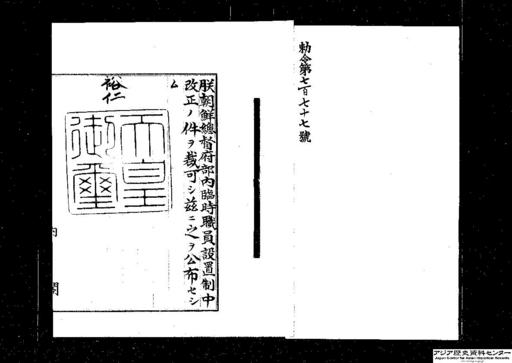 勅令第七百七十七號
朕朝鮮總督府部內臨時職員設置制中
改正ノ件ヲ裁可シ茲ニ之ヲ公布セシ
ム
裕仁
天皇
御璽
内
閣
アジア歴史資料センター
Japan Center for Asian Historical Records